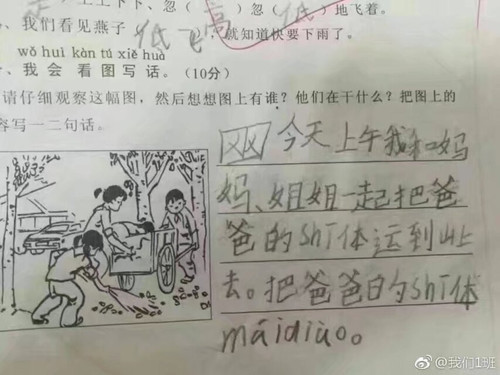 上上下下、忽（高）忽（低）地飞着。
、我们看见燕子低飞 就知道快要下雨了。
wǒ huì kàn tú xiě huà
、我会看图写话。(10分)
请仔细观察这幅图，然后想想图上有谁？他们在干什么？把图上的
容写一二句话。
今天上午我和妈
妈、姐姐一起把爸
爸的shī体运到山上
去。把爸爸的shī体
máidiào。
@我们1班